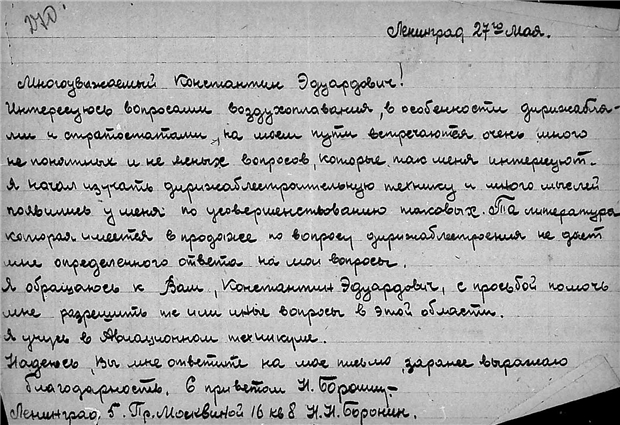 270.
Ленинград 27го Мая.
Многоуважаемый Константин Эдуардович!
Интересуюсь вопросами воздухоплавания, в особенности дирижабля-
ми и стратостатами, на моем пути встречаются очень много
не понятных и не ясных вопросов, которые так меня интересуют.
Я начал изучать дирижаблестроительную технику и много мыслей
появились у меня по усовершенствованию таковых. Та литература
которая имеется в продаже по вопросу дирижаблестроения не дает
мне определенного ответа на мои вопросы.
Я обращаюсь к Вам, Константин Эдуардович, с просьбой помочь
мне разрешить те или иные вопросы в этой области.
Я учусь в Авиационном техникуме.
Надеюсь, Вы мне ответите на мое письмо, заранее выражаю
благодарность. С приветом Н.
Ленинград, 5. Пр. Москвиной 16 кв 8 Н.Н. Боронин.